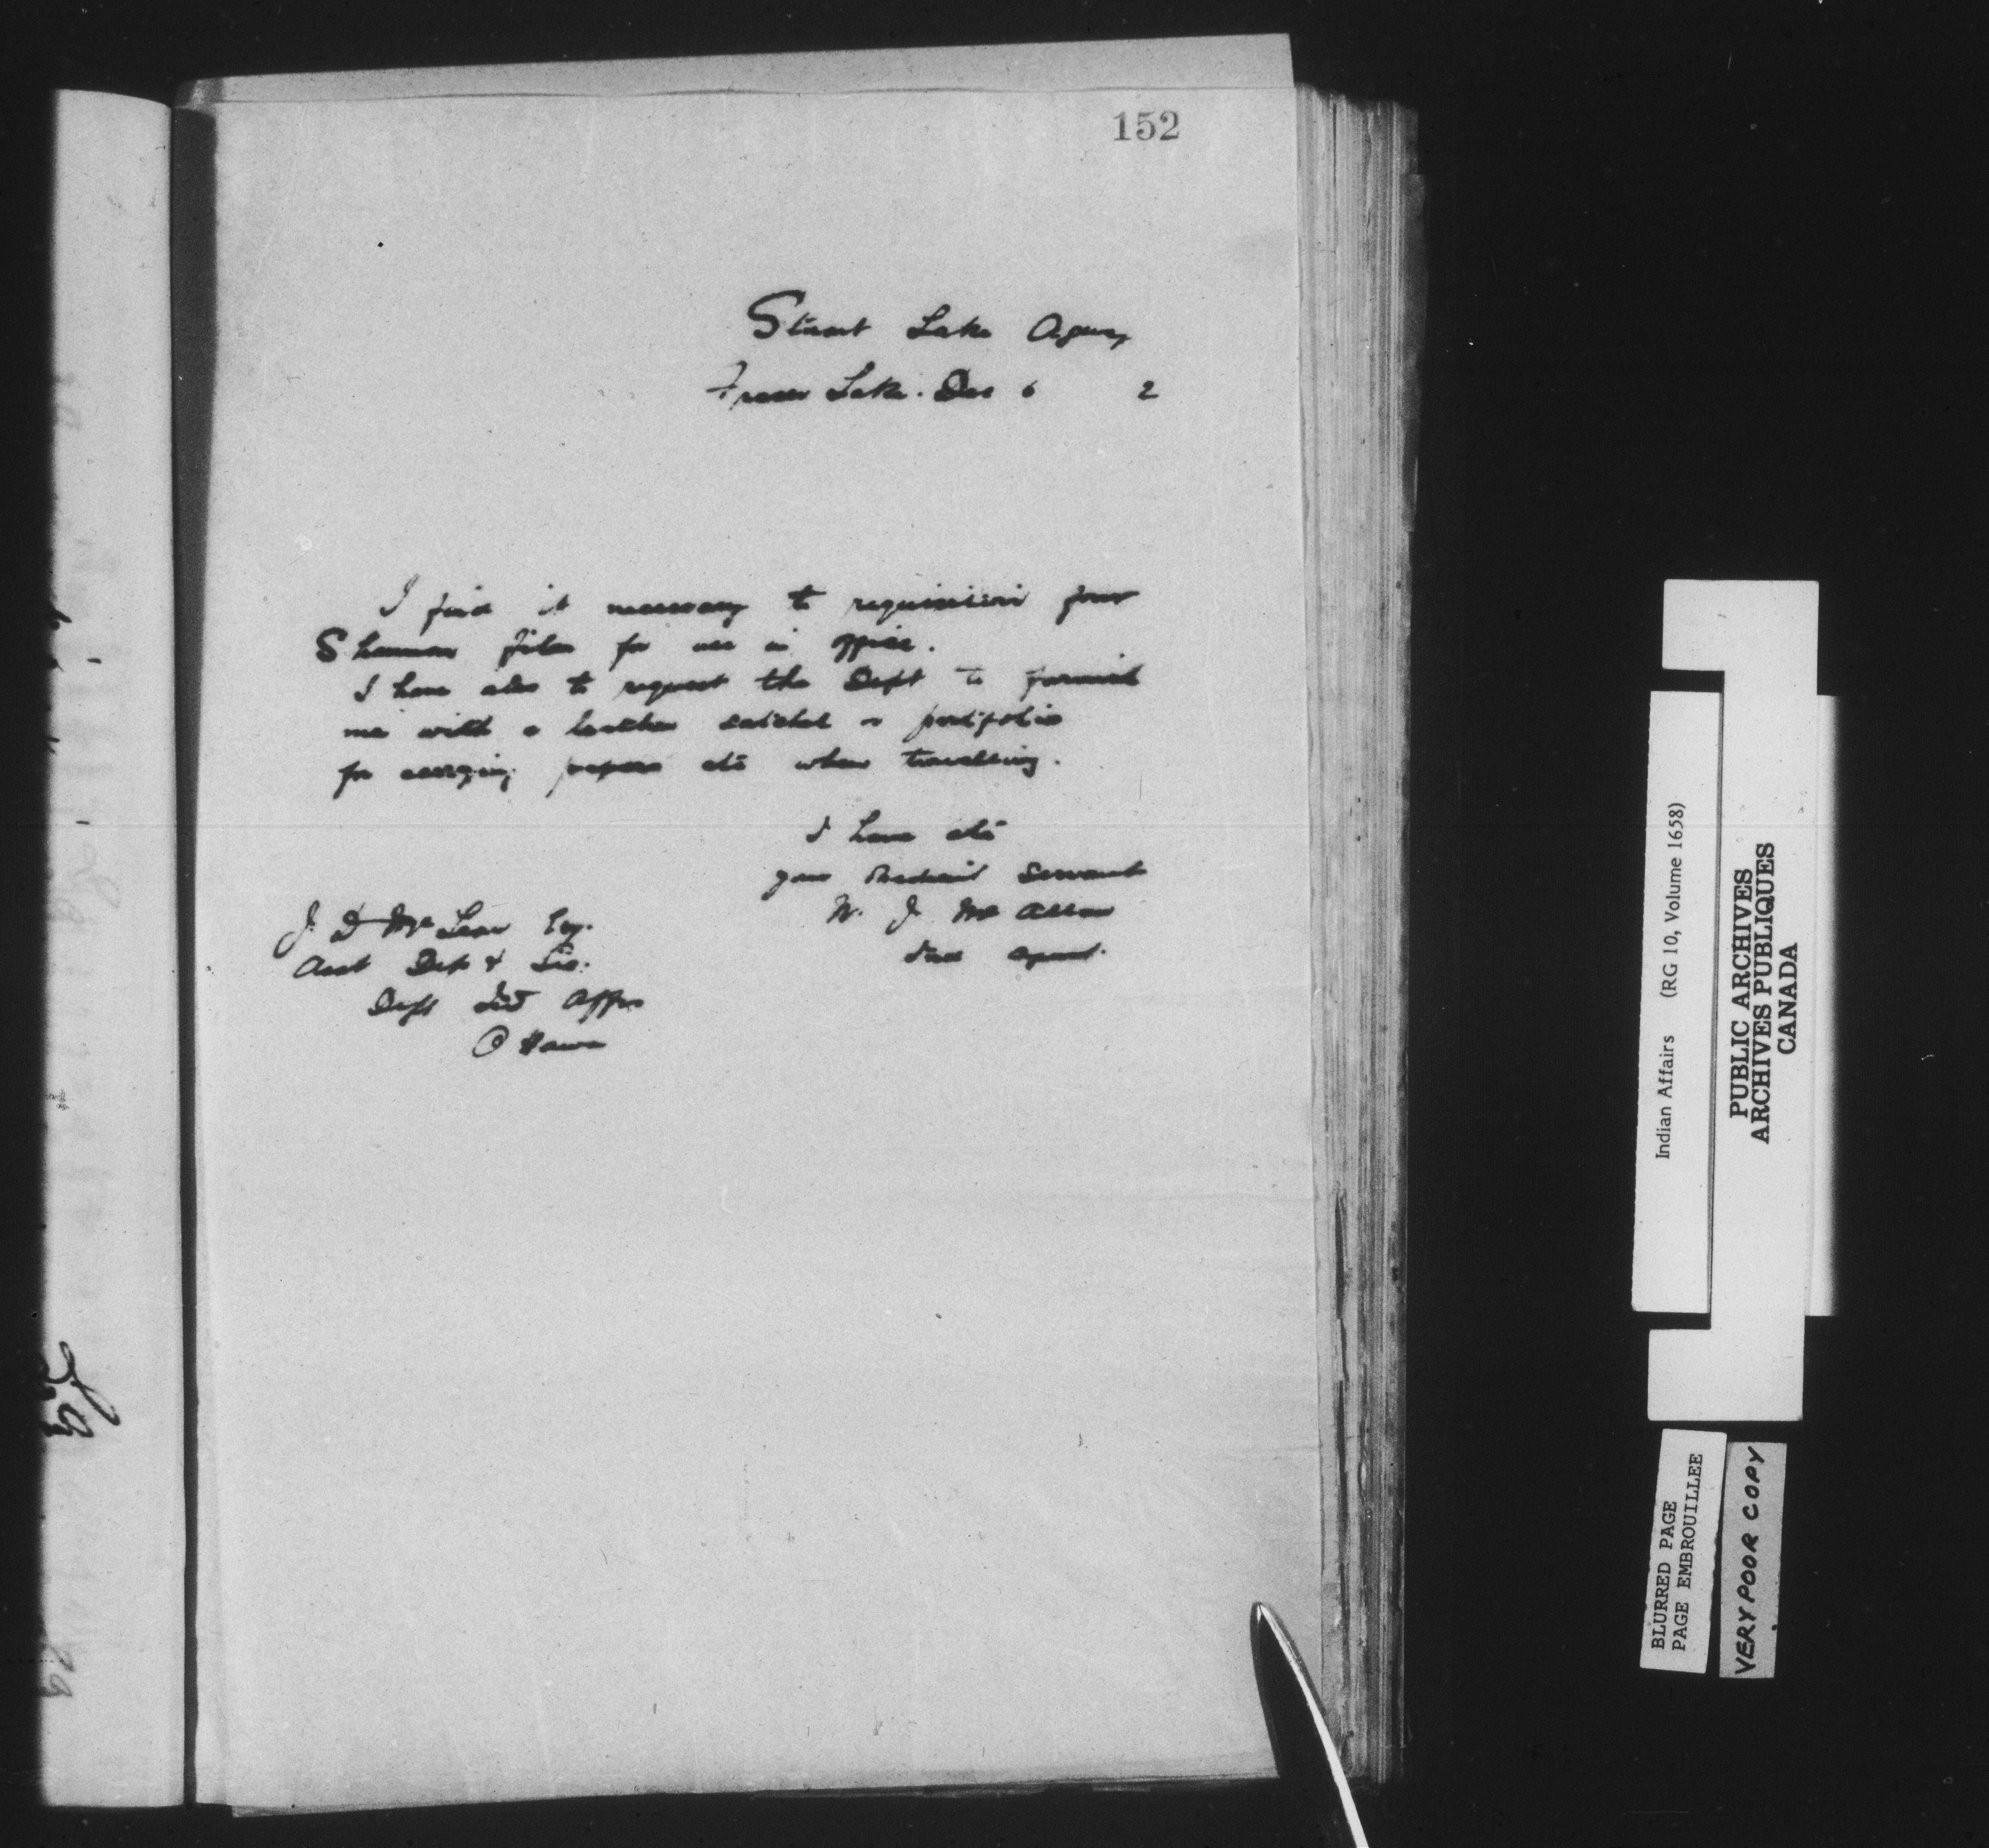 152
Stuart Lake Agency
Fraser Lake. Dec 6 2
I find it necessary to requisition four
Shannon files for use in office.
I have also to request the Dept to furnish
me with a leather satchel or portfolio
for carrying papers etc when travelling.
I have etc
your obedient servant
W. J. McAllan
Ind Agent.
J. D McLean Esq.
Asst Dep & Sec.
Dept Ind Affrs
Ottawa
Indian Affairs (RG 10, Volume 1658)
PUBLIC ARCHIVES
ARCHIVES PUBLIQUES
CANADA
BLURRED PAGE
PAGE EMBROUILLEE
VERY POOR COPY